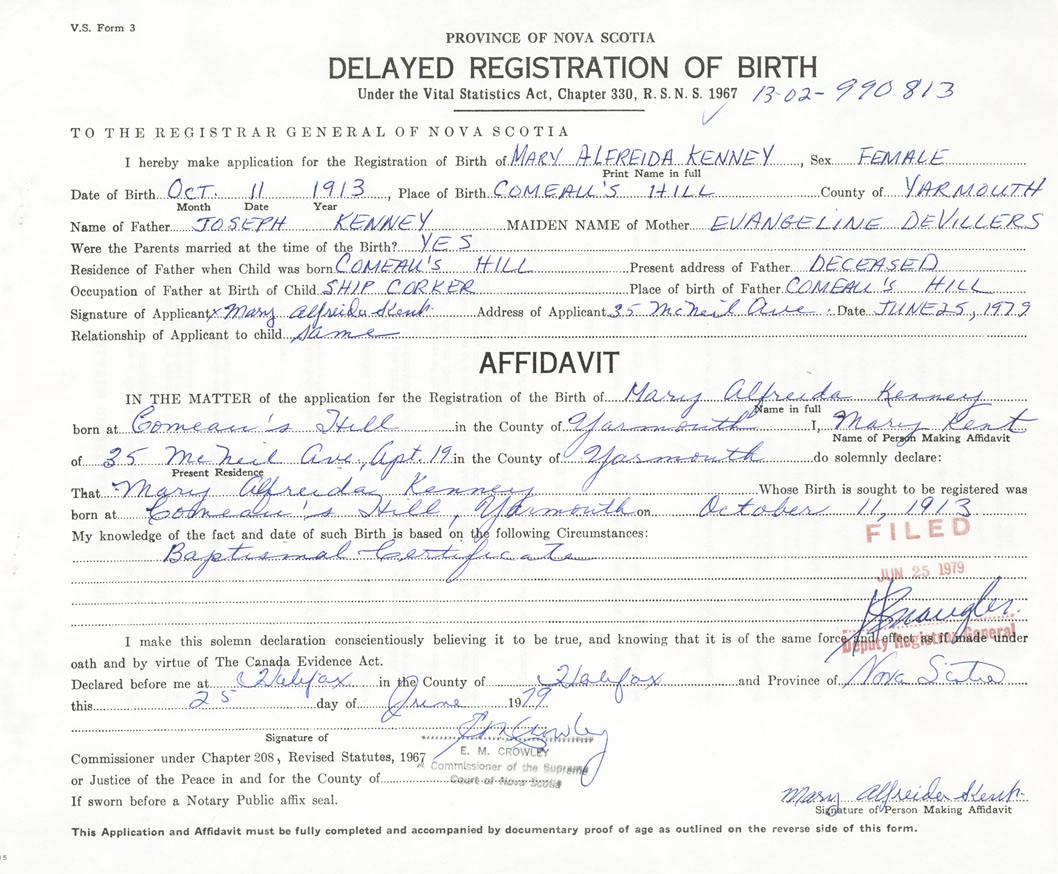 V.S. Form 3
PROVINCE OF NOVA SCOTIA
DELAYED REGISTRATION OF BIRTH
Under the Vital Statistics Act, Chapter 330, R.S.N.S. 1967 13-02-990813
TO THE REGISTRAR GENERAL OF NOVA SCOTIA
I hereby make application for the Registration of Birth of MARY ALFREIDA KENNEY, Sex FEMALE
Print Name in full
Date of Birth OCT. 11 1913, Place of Birth COMEAU'S HILL County of YARMOUTH
Month Date Year
Name of Father JOSEPH KENNEY MAIDEN NAME of Mother EVANGELINE DEVILLERS
Were the Parents married at the time of the Birth? YES
Residence of Father when Child was born COMEAU'S HILL Present address of Father DECEASED
Occupation of Father at Birth of Child SHIP CORKER Place of birth of Father COMEAU'S HILL
Signature of Applicant x Mary Alfreida Kent Address of Applicant 35 McNeil Ave. Date JUNE 25, 1979
Relationship of Applicant to child same
AFFIDAVIT
IN THE MATTER of the application for the Registration of the Birth of Mary Alfreida Kenney
Name in full
born at Comeau's Hill in the County of Yarmouth I, Mary Kent
Name of Person Making Affidavit
of 35 McNeil Ave, Apt. 19 in the County of Yarmouth do solemnly declare:
Present Residence
That Mary Alfreida Kenney Whose Birth is sought to be registered was
born at Comeau's Hill, Yarmouth on October 11, 1913
My knowledge of the fact and date of such Birth is based on the following Circumstances:
FILED
Baptismal Certificate
JUN 25 1979
I make this solemn declaration conscientiously believing it to be true, and knowing that it is of the same force and effect as if made under
Deputy Registrar General
oath and by virtue of The Canada Evidence Act.
Declared before me at Halifax in the County of Halifax and Province of Nova Scotia
this 25 day of June 1979
Signature of
E. M. CROWLEY
Commissioner under Chapter 208, Revised Statutes, 1967
A Commissioner of the Supreme
Court of Nova Scotia
or Justice of the Peace in and for the County of
If sworn before a Notary Public affix seal.
Mary Alfreida Kent
Signature of Person Making Affidavit
This Application and Affidavit must be fully completed and accompanied by documentary proof of age as outlined on the reverse side of this form.